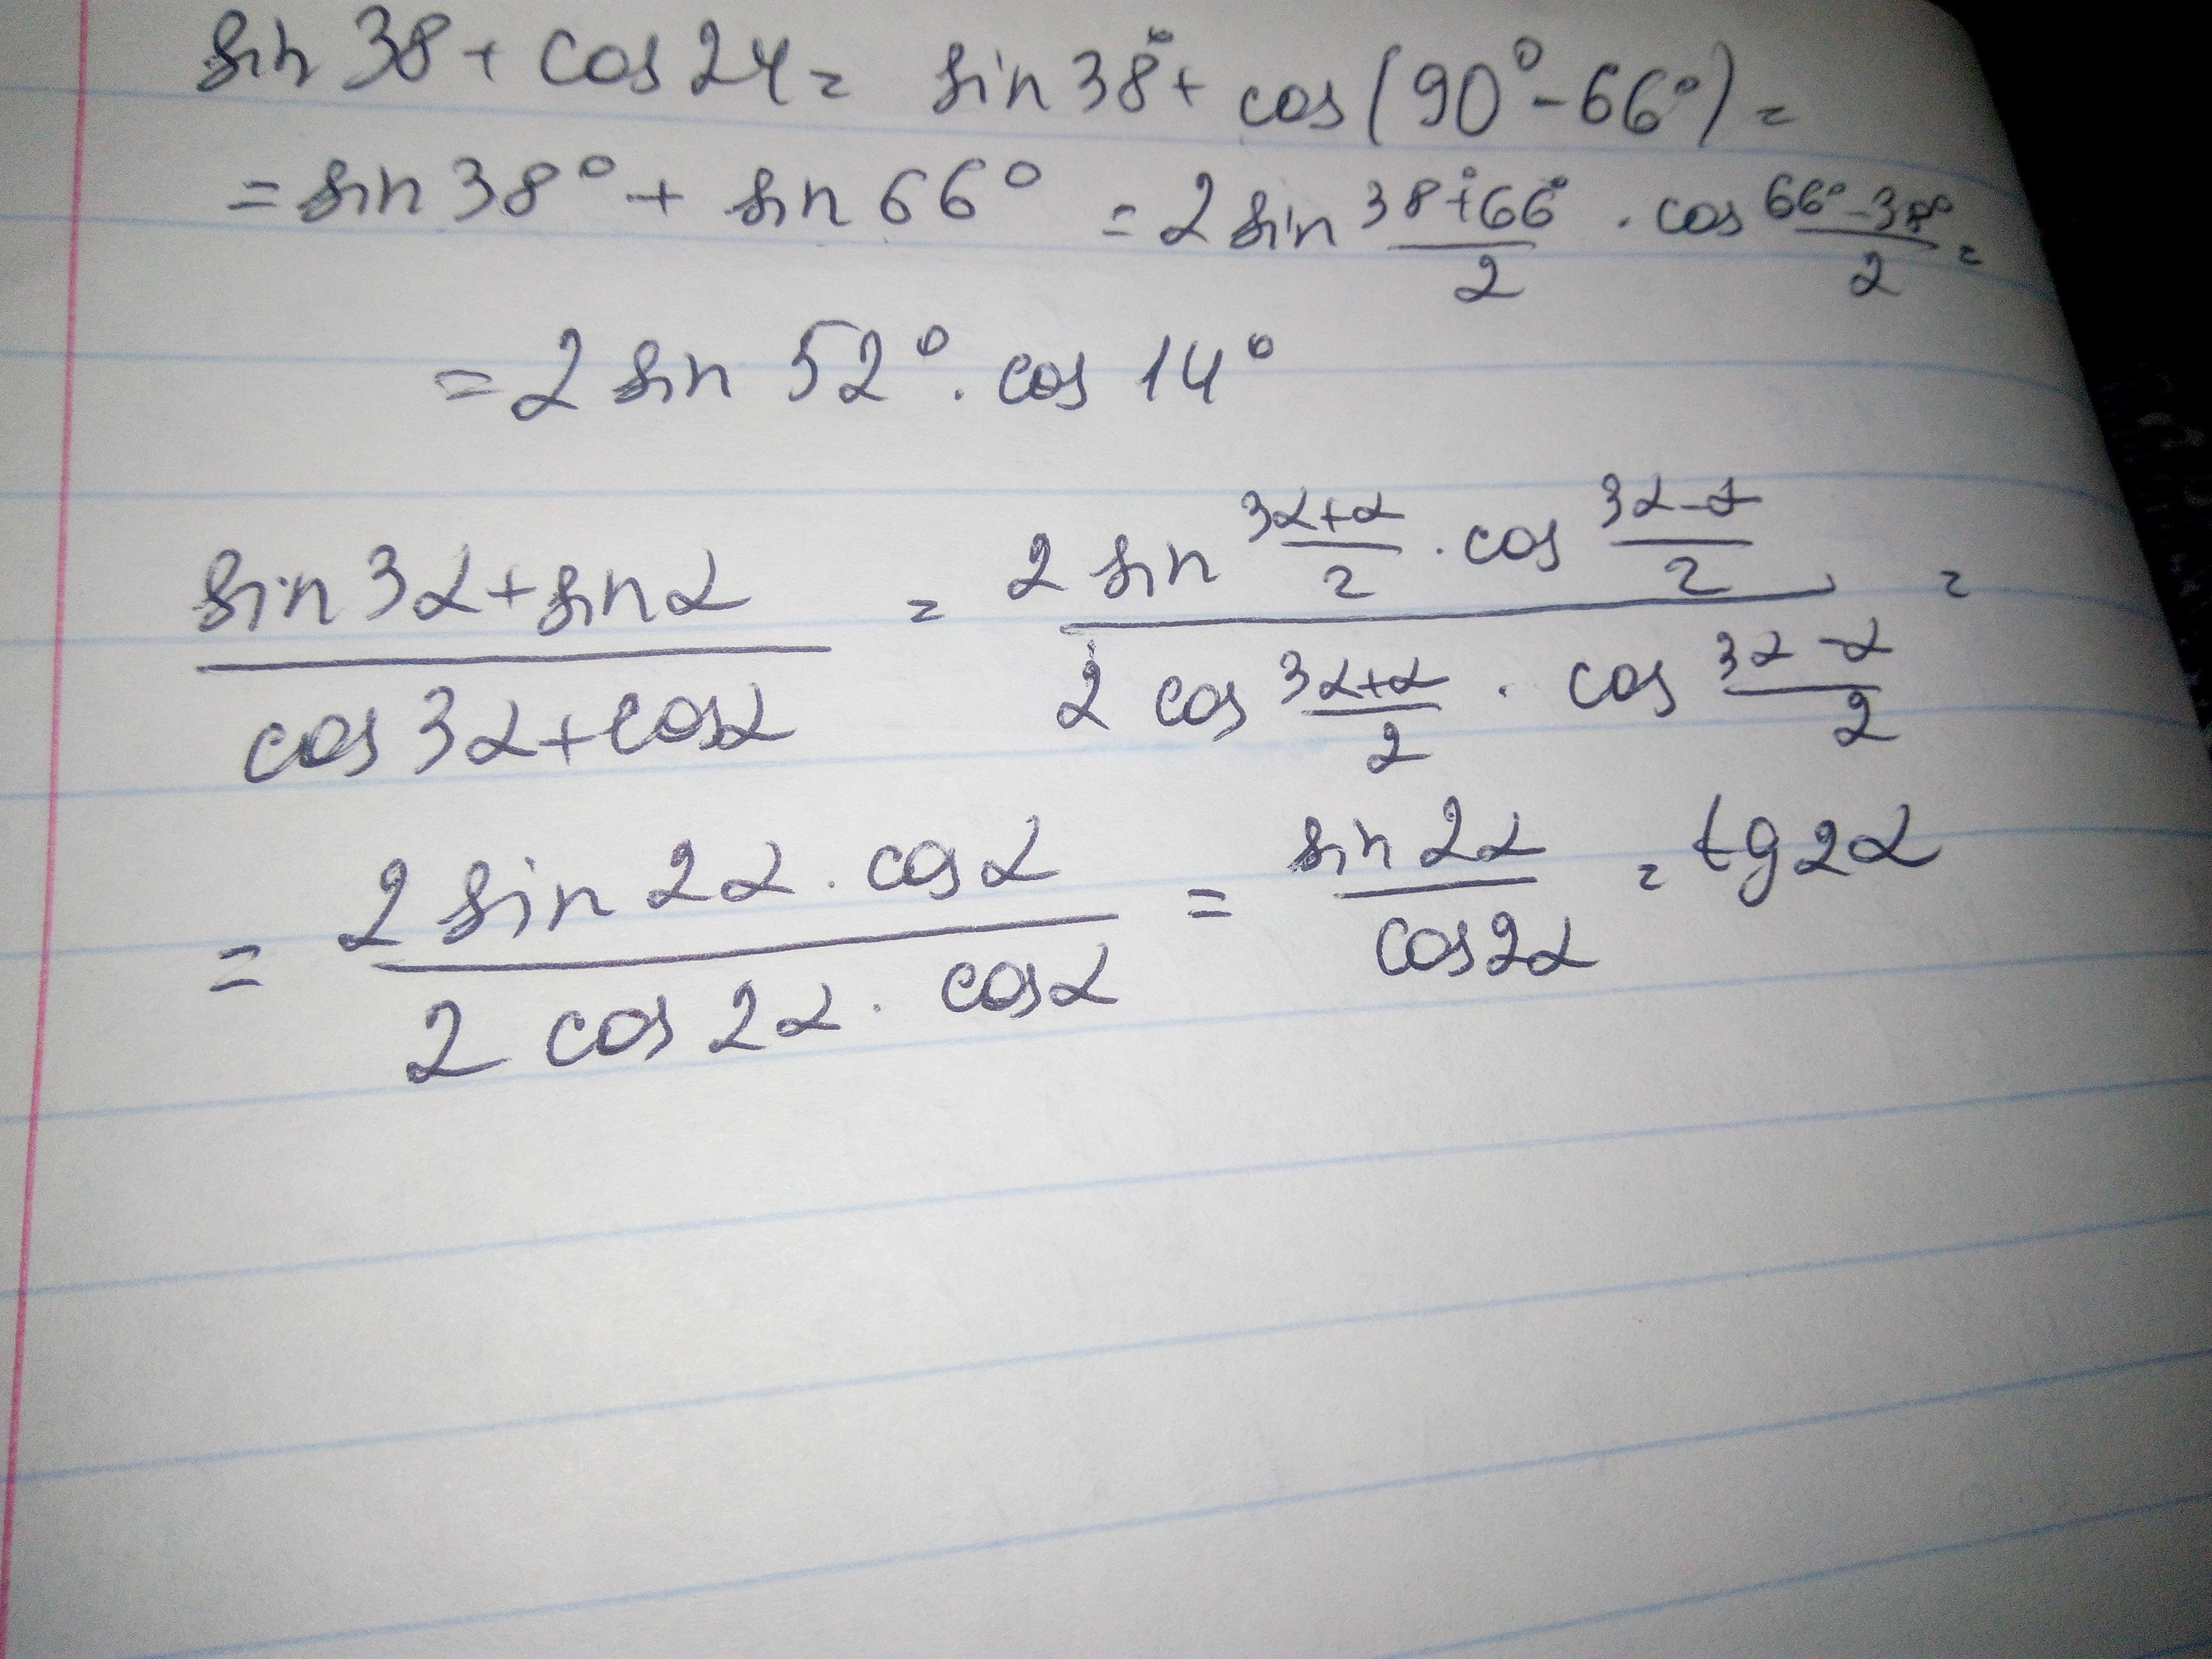 sin 38 + cos 24 = sin 38° + cos (90° - 66°) =
= sin 38° + sin 66° = 2 sin (38°+66°)/2 · cos (66°-38°)/2 =
= 2 sin 52° · cos 14°
(sin 3α + sin α)/(cos 3α + cos α) = (2 sin (3α+α)/2 · cos (3α-α)/2)/(2 cos (3α+α)/2 · cos (3α-α)/2) =
= (2 sin 2α · cos α)/(2 cos 2α · cos α) = (sin 2α)/(cos 2α) = tg 2α